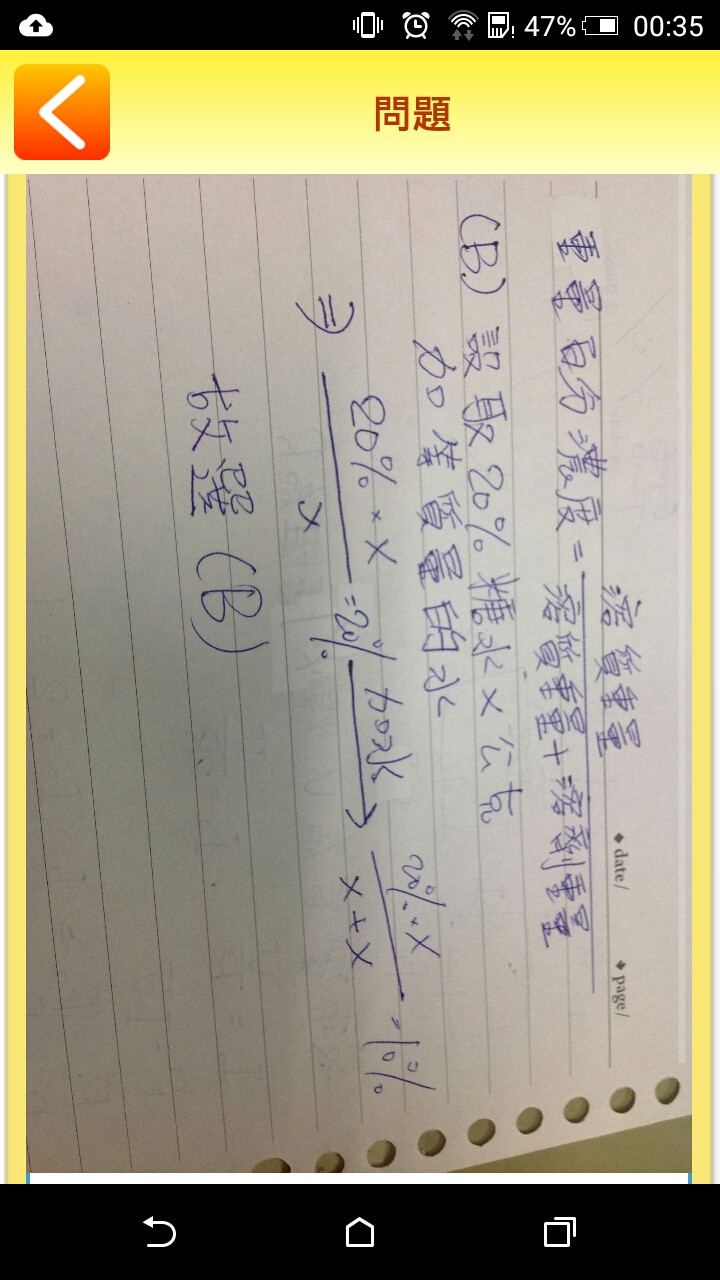 47% 00:35
問題
date/ page/
重量百分濃度 = 溶質重量
溶質重量 + 溶劑重量
(B) 設取20%糖水x公克
加等質量的水
⇒ 20%·x
x
=20% 加水→ 20%·x
x+x
=10%
故選(B)